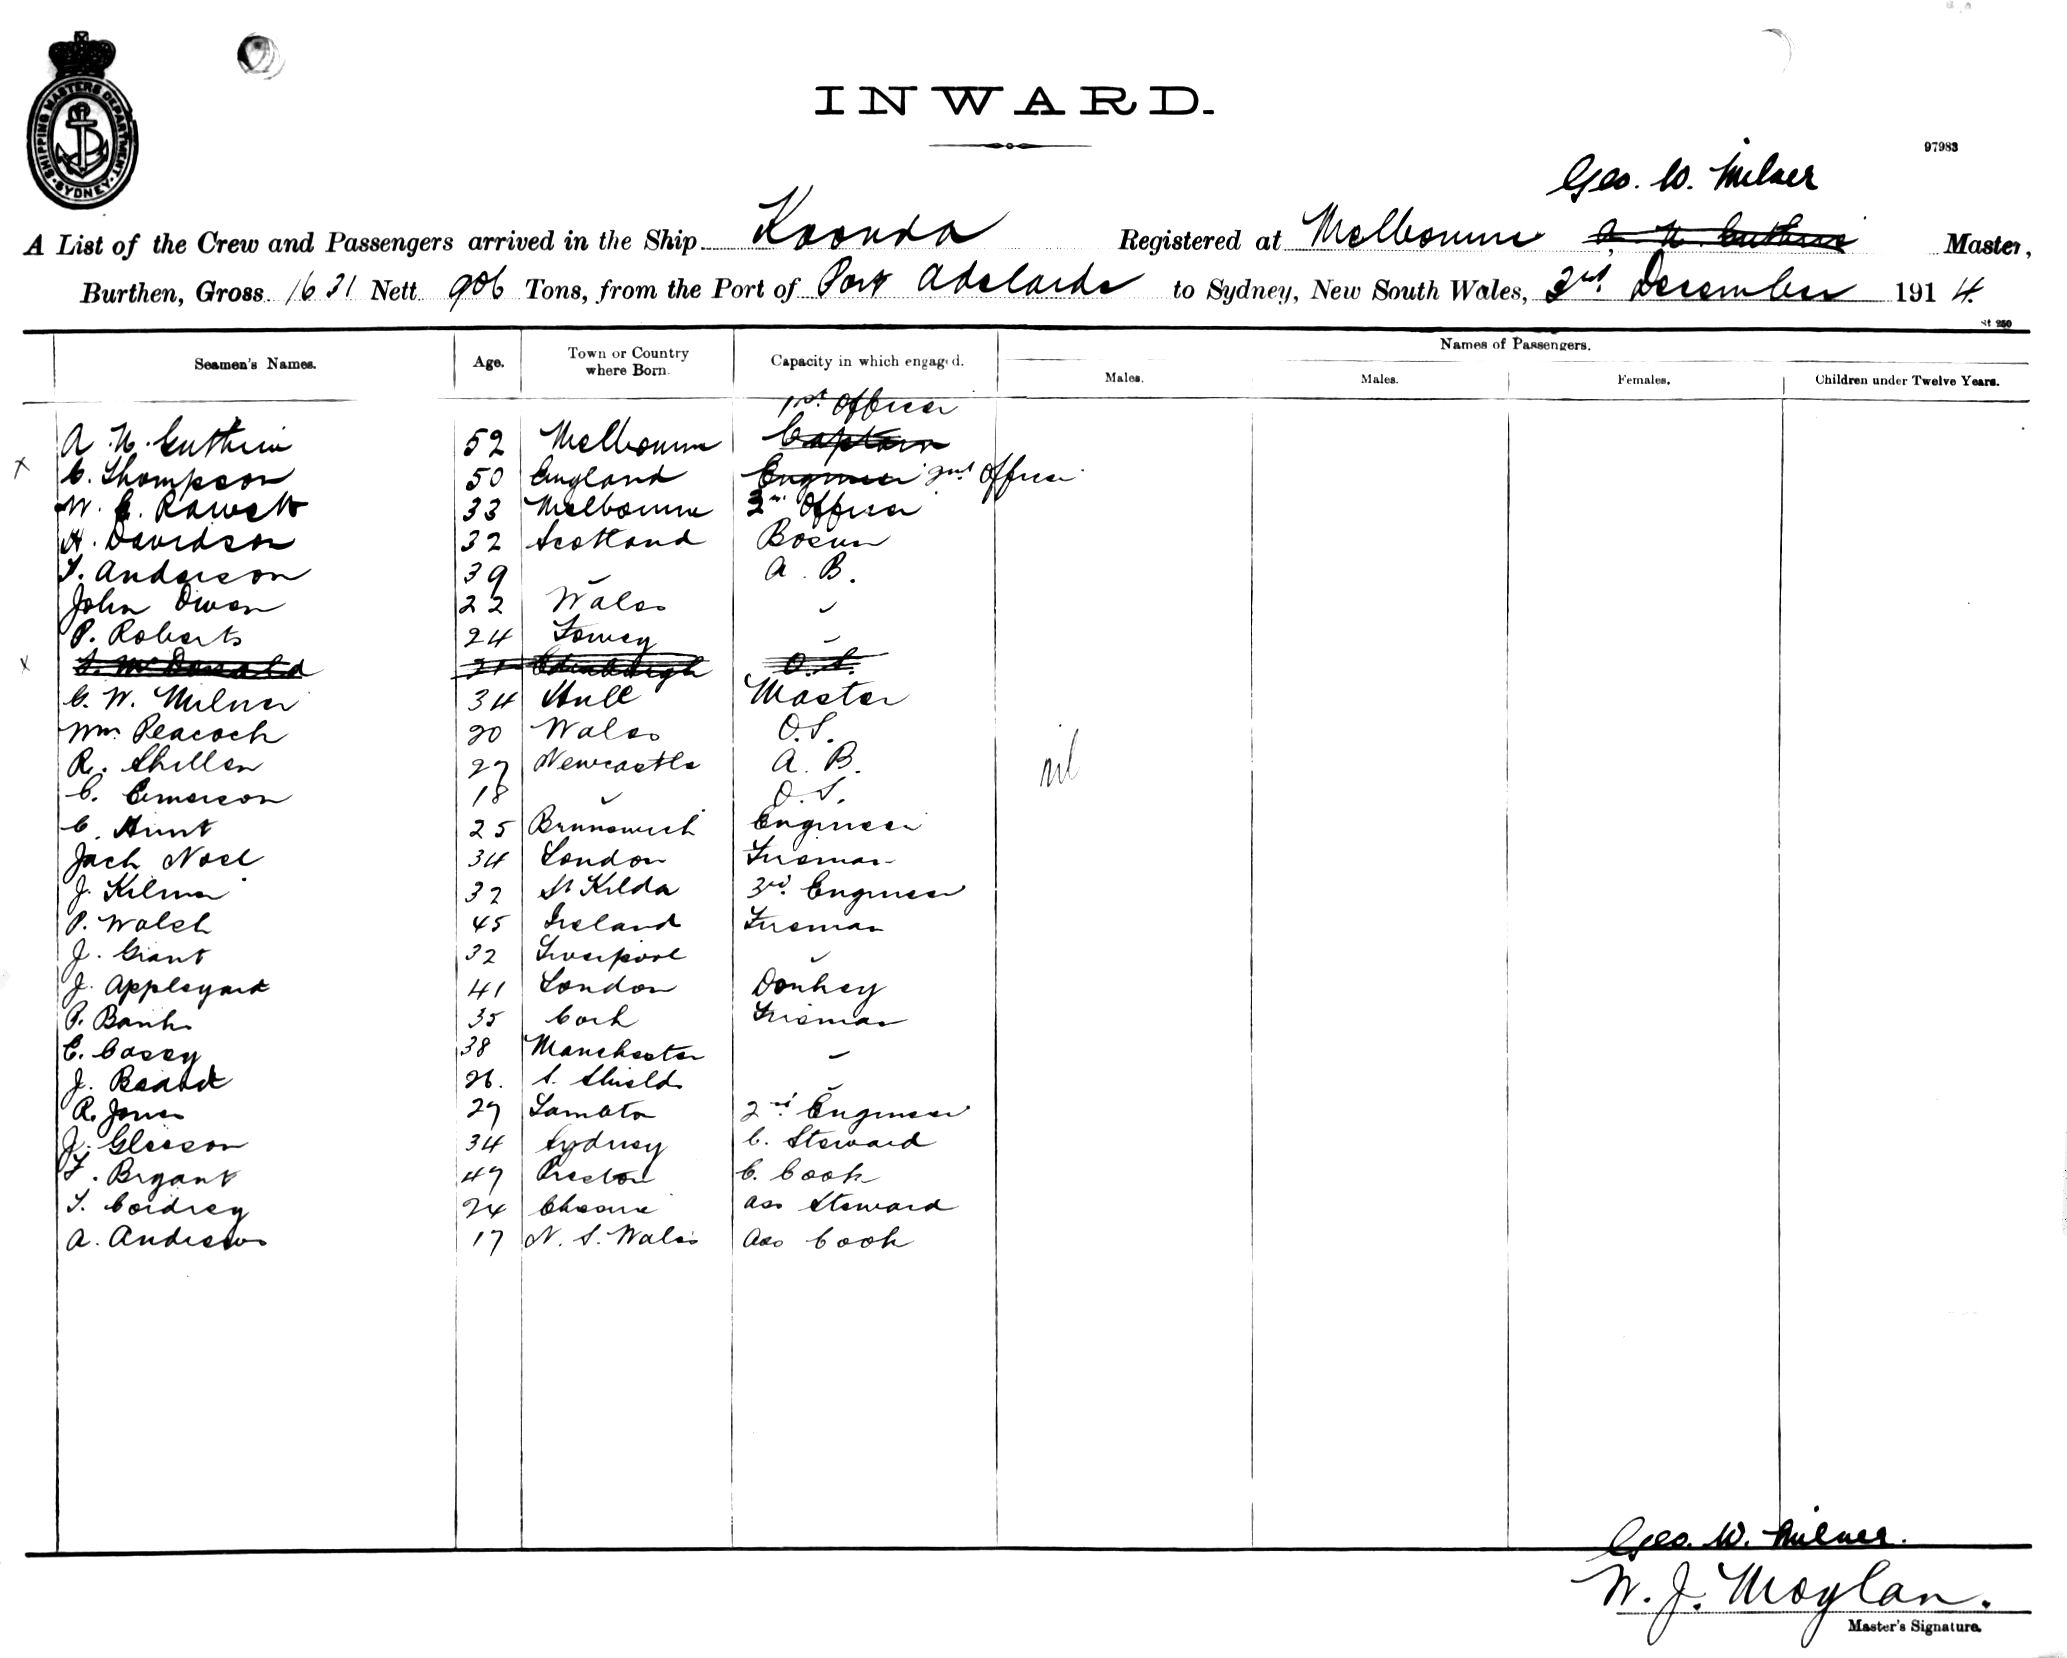 SHIPPING MASTERS DEPARTMENT SYDNEY
INWARD.
97983
Geo. W. Milner
A List of the Crew and Passengers arrived in the Ship Koonda Registered at Melbourne A. N. Guthrie Master,
Burthen, Gross 1631 Nett 906 Tons, from the Port of Port Adelaide to Sydney, New South Wales, 2nd December 1914.
St 250
Seamen's Names. Age. Town or Country where Born. Capacity in which engaged. Names of Passengers.
Males. Males. Females. Children under Twelve Years.
1st Officer
A. N. Guthrie 52 Melbourne Captain
x C. Thompson 50 England Engineer 2nd Officer
W. E. 33 Melbourne Officer
H. Davidson 32 Scotland Bosun
T. Anderson 39 " A. B.
John Owen 22 Wales "
P. Roberts 24 Fowey "
x S. McDonald 21 Edinburgh O.S.
G. W. Milner 34 Hull Master
Wm. Peacock 20 Wales O.S.
R. Shillen 27 Newcastle A. B.
nil
C. Emerson 18 " O.S.
C. Hunt 25 Brunswick Engineer
Jack Noel 34 London Fireman
J. 32 St Kilda 3rd. Engineer
P. Walsh 45 Ireland Fireman
J. Grant 32 Liverpool "
J. Appleyard 41 London Donkey
P. Banks 35 Cork Fireman
C. Casey 38 Manchester "
J. 26. S. Shields "
R. Jones 27 2nd Engineer
J. Gleeson 34 Sydney C. Steward
F. Bryant 47 Preston C. Cook
T. Cordrey 24 Ass Steward
A. Andrews 17 N. S. Wales Ass Cook
Geo. W. Milner.
W. J. Moylan.
Master's Signature.